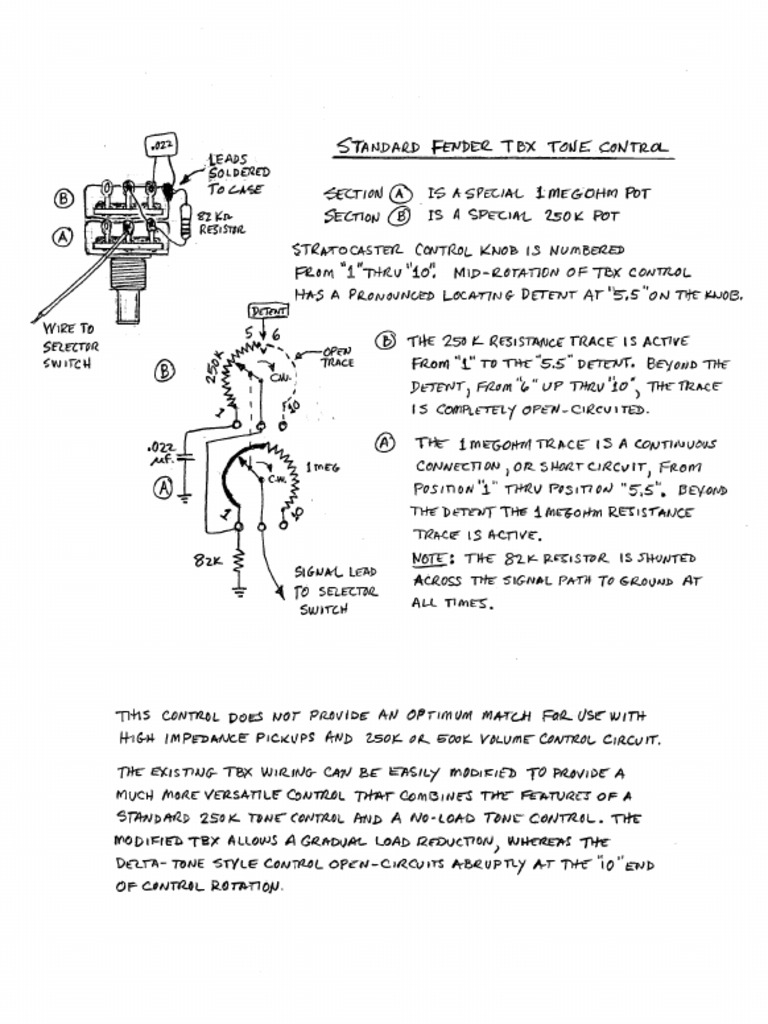 STANDARD FENDER TBX TONE CONTROL
.022
LEADS
SOLDERED
TO CASE
B
82KΩ
RESISTOR
A
WIRE TO
SELECTOR
SWITCH
SECTION A IS A SPECIAL 1MEGOHM POT
SECTION B IS A SPECIAL 250K POT
STRATOCASTER CONTROL KNOB IS NUMBERED
FROM "1" THRU "10". MID-ROTATION OF TBX CONTROL
HAS A PRONOUNCED LOCATING DETENT AT "5.5" ON THE KNOB.
DETENT
5 6
OPEN
TRACE
B
250K
C.W.
1
10
.022
µF.
A
1 MEG
C.W.
1
10
82K
SIGNAL LEAD
TO SELECTOR
SWITCH
B THE 250K RESISTANCE TRACE IS ACTIVE
FROM "1" TO THE "5.5" DETENT. BEYOND THE
DETENT, FROM "6" UP THRU "10", THE TRACE
IS COMPLETELY OPEN-CIRCUITED.
A THE 1MEGOHM TRACE IS A CONTINUOUS
CONNECTION, OR SHORT CIRCUIT, FROM
POSITION "1" THRU POSITION "5.5". BEYOND
THE DETENT THE 1MEGOHM RESISTANCE
TRACE IS ACTIVE.
NOTE: THE 82K RESISTOR IS SHUNTED
ACROSS THE SIGNAL PATH TO GROUND AT
ALL TIMES.
THIS CONTROL DOES NOT PROVIDE AN OPTIMUM MATCH FOR USE WITH
HIGH IMPEDANCE PICKUPS AND 250K OR 500K VOLUME CONTROL CIRCUIT.
THE EXISTING TBX WIRING CAN BE EASILY MODIFIED TO PROVIDE A
MUCH MORE VERSATILE CONTROL THAT COMBINES THE FEATURES OF A
STANDARD 250K TONE CONTROL AND A NO-LOAD TONE CONTROL. THE
MODIFIED TBX ALLOWS A GRADUAL LOAD REDUCTION, WHEREAS THE
DELTA-TONE STYLE CONTROL OPEN-CIRCUITS ABRUPTLY AT THE "10" END
OF CONTROL ROTATION.